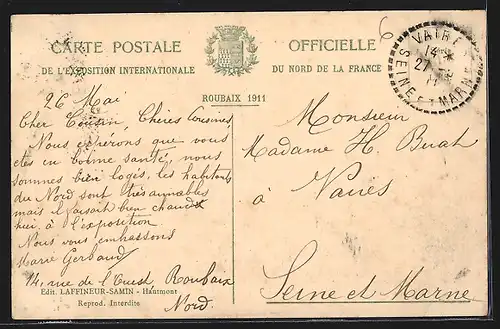 CARTE POSTALE OFFICIELLE
DE L'EXPOSITION INTERNATIONALE DU NORD DE LA FRANCE
ROUBAIX 1911
6
VAIR
14
27
11
SEINE ET MARNE
26 Mai
Cher Cousin, Chères Cousines,
Nous espérons que vous
êtes en bonne santé, nous
sommes bien logés, les habitants
du Nord sont très aimables
mais il faisait bien chaud
hier à l'exposition
Nous vous embrassons
Marie Gerbaud
14, rue de l'Ouest, Roubaix
Nord.
Edit. LAFFINEUR-SAMIN - Hautmont
Reprod. Interdite
Monsieur
Madame H. Buat
à Vaires
Seine et Marne